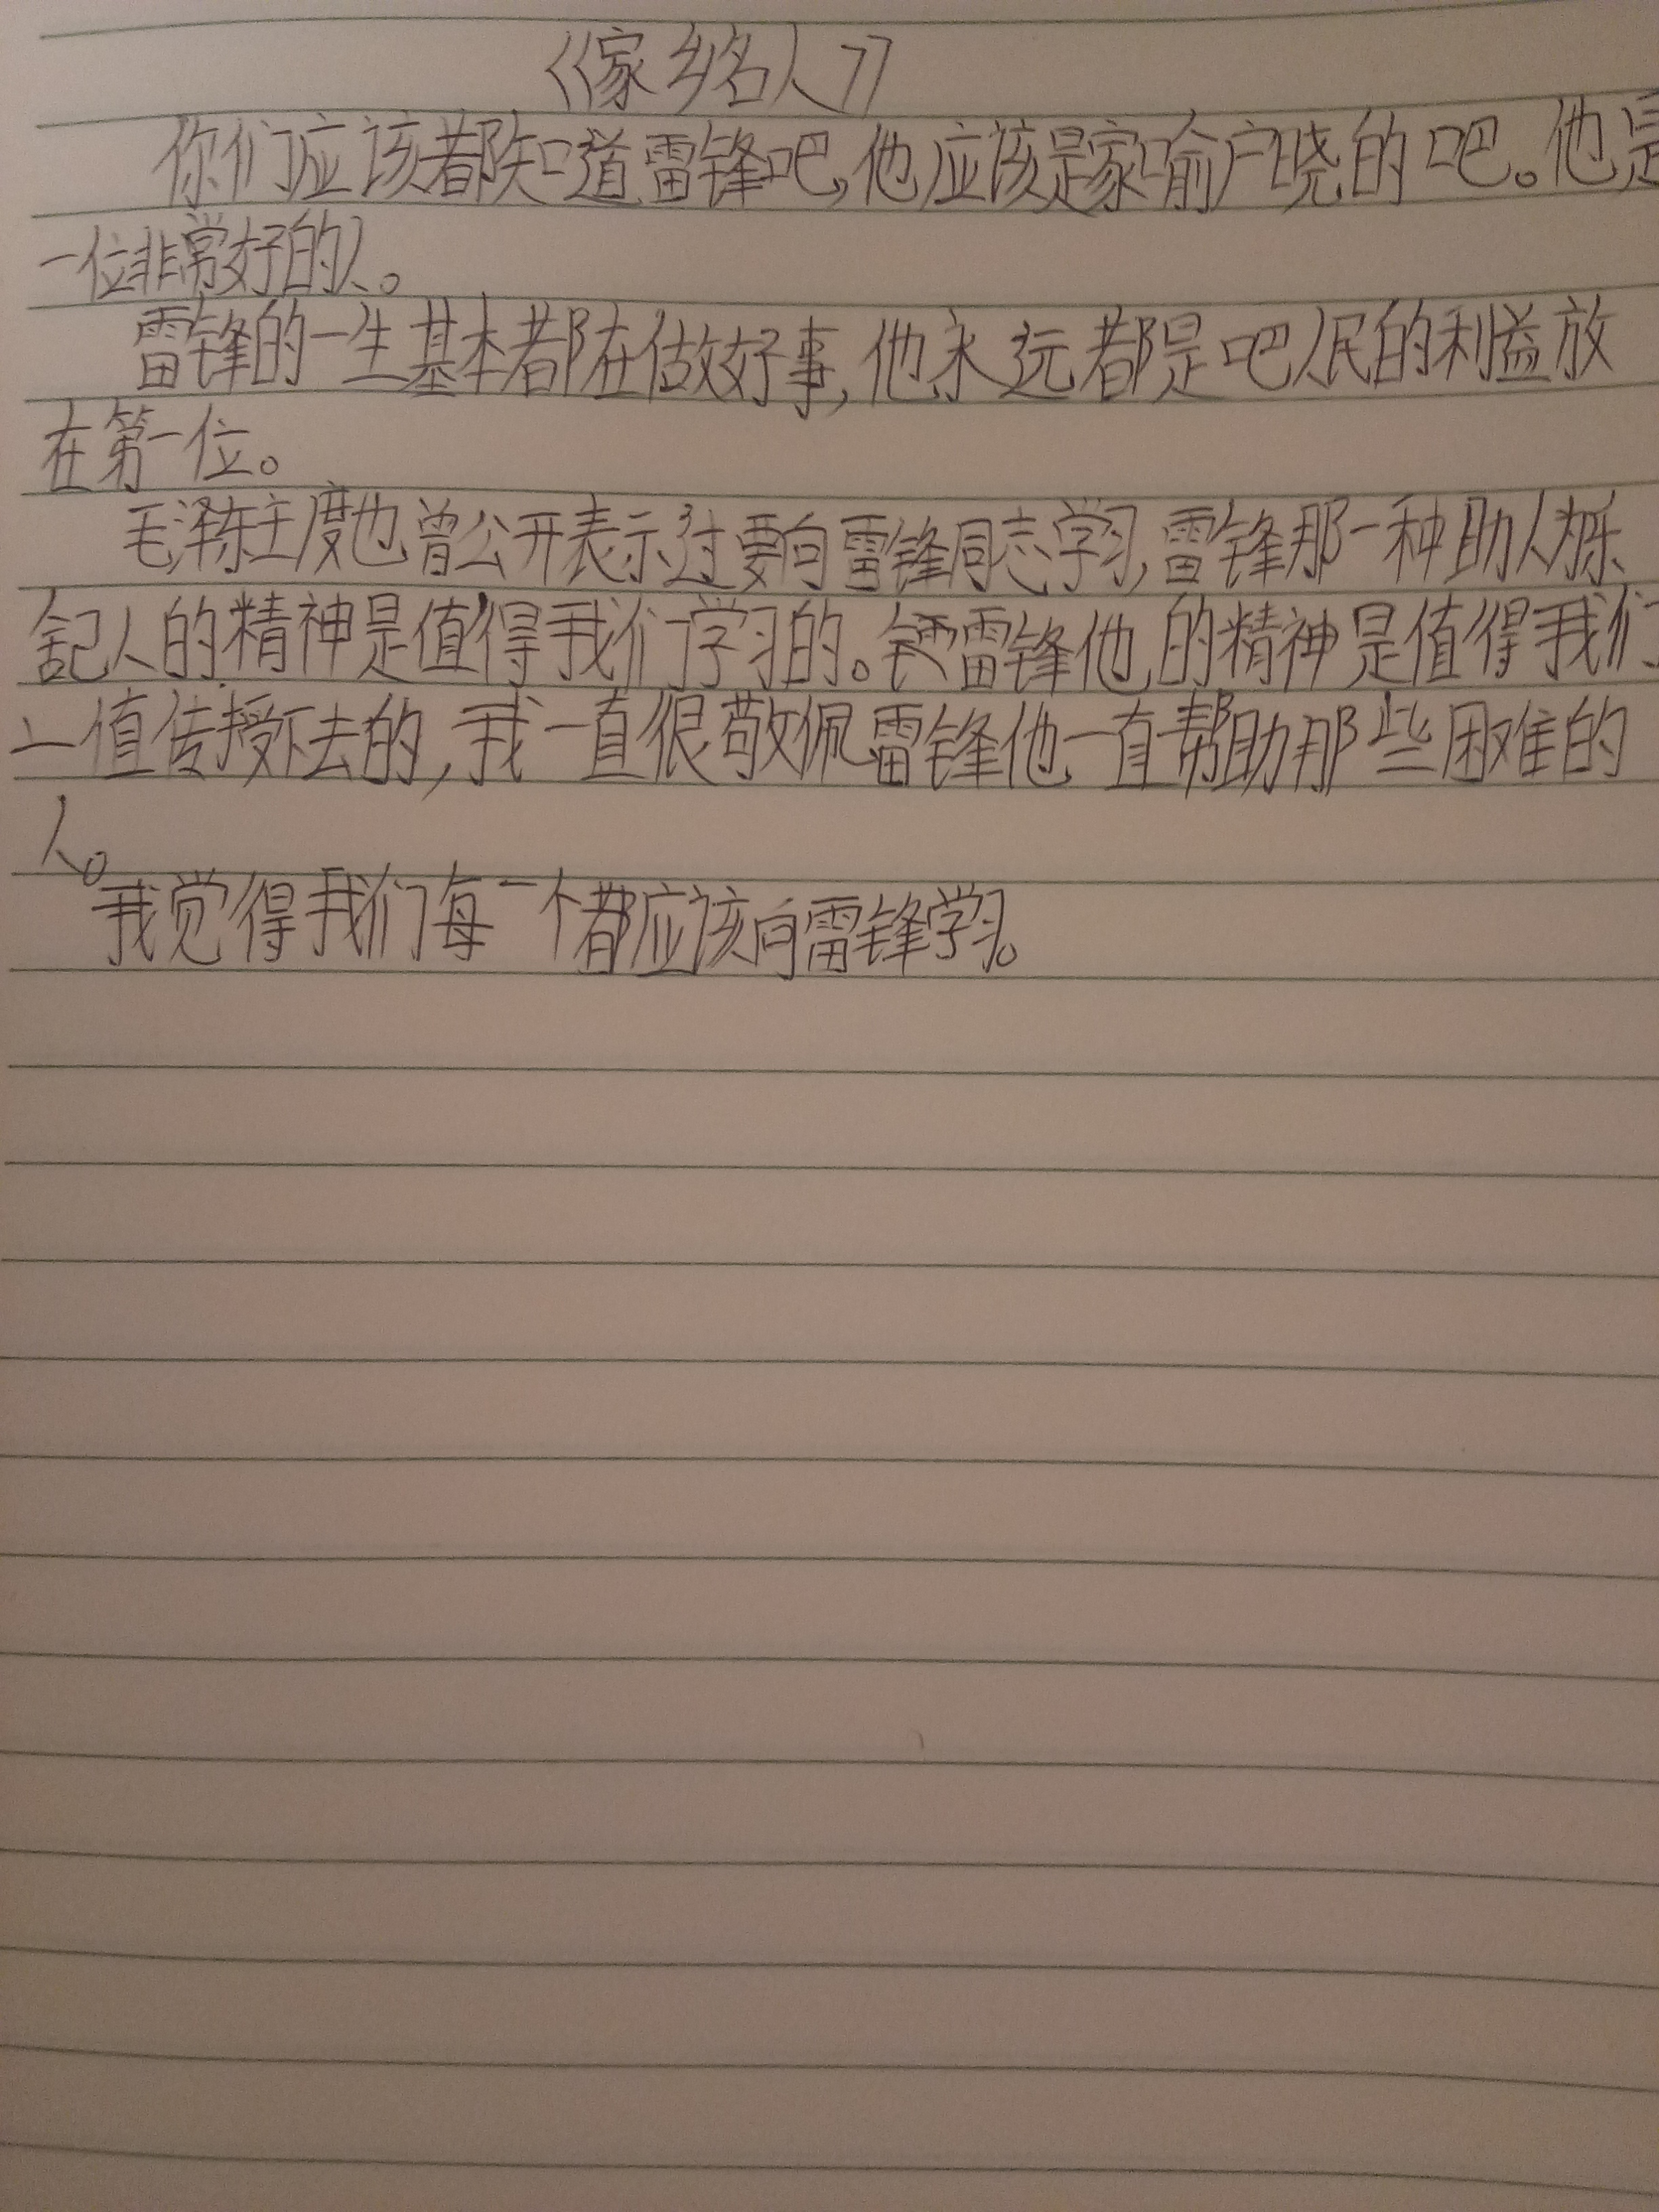 《家乡名人》
你们应该都知道雷锋吧,他应该是家喻户晓的吧。他是
一位非常好的人。
雷锋的一生基本都在做好事,他永远都是吧人民的利益放
在第一位。
毛泽东主度也曾公开表示过要向雷锋同志学习,雷锋那一种助人
人的精神是值得我们学习的。雷锋他的精神是值得我们
一值传授下去的,我一直很敬佩雷锋他一直帮助那些困难的
人。
我觉得我们每一个都应该向雷锋学习。